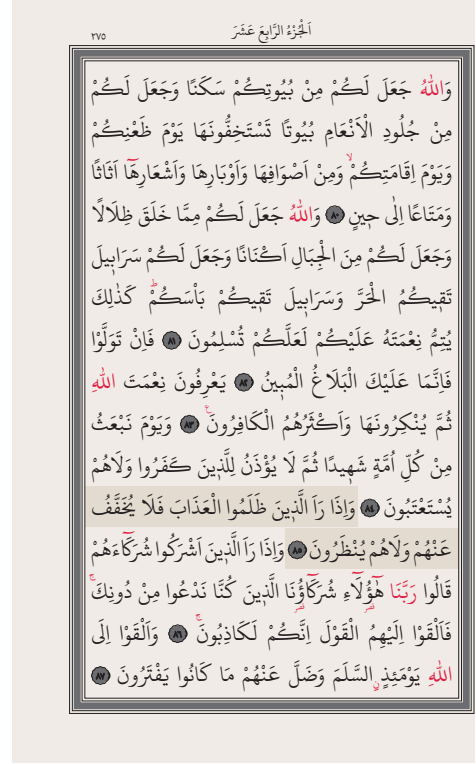 اَلْجُزْءُ الرَّابِعَ عَشَرَ
٢٧٥
وَاللّٰهُ جَعَلَ لَكُمْ مِنْ بُيُوتِكُمْ سَكَنًا وَجَعَلَ لَكُمْ
مِنْ جُلُودِ الْاَنْعَامِ بُيُوتًا تَسْتَخِفُّونَهَا يَوْمَ ظَعْنِكُمْ
وَيَوْمَ اِقَامَتِكُمْۙ وَمِنْ اَصْوَافِهَا وَاَوْبَارِهَا وَاَشْعَارِهَٓا اَثَاثًا
وَمَتَاعًا اِلٰى ح۪ينٍ ﴿٨٠﴾ وَاللّٰهُ جَعَلَ لَكُمْ مِمَّا خَلَقَ ظِلَالًا
وَجَعَلَ لَكُمْ مِنَ الْجِبَالِ اَكْنَانًا وَجَعَلَ لَكُمْ سَرَاب۪يلَ
تَق۪يكُمُ الْحَرَّ وَسَرَاب۪يلَ تَق۪يكُمْ بَاْسَكُمْۜ كَذٰلِكَ
يُتِمُّ نِعْمَتَهُ عَلَيْكُمْ لَعَلَّكُمْ تُسْلِمُونَ ﴿٨١﴾ فَاِنْ تَوَلَّوْا
فَاِنَّمَا عَلَيْكَ الْبَلَاغُ الْمُب۪ينُ ﴿٨٢﴾ يَعْرِفُونَ نِعْمَتَ اللّٰهِ
ثُمَّ يُنْكِرُونَهَا وَاَكْثَرُهُمُ الْكَافِرُونَ۟ ﴿٨٣﴾ وَيَوْمَ نَبْعَثُ
مِنْ كُلِّ اُمَّةٍ شَه۪يدًا ثُمَّ لَا يُؤْذَنُ لِلَّذ۪ينَ كَفَرُوا وَلَاهُمْ
يُسْتَعْتَبُونَ ﴿٨٤﴾ وَاِذَا رَاَ الَّذ۪ينَ ظَلَمُوا الْعَذَابَ فَلَا يُخَفَّفُ
عَنْهُمْ وَلَاهُمْ يُنْظَرُونَ ﴿٨٥﴾ وَاِذَا رَاَ الَّذ۪ينَ اَشْرَكُوا شُرَكَٓاءَهُمْ
قَالُوا رَبَّنَا هٰٓؤُ۬لَٓاءِ شُرَكَٓاؤُ۬نَا الَّذ۪ينَ كُنَّا نَدْعُوا مِنْ دُونِكَۚ
فَاَلْقَوْا اِلَيْهِمُ الْقَوْلَ اِنَّكُمْ لَكَاذِبُونَۚ ﴿٨٦﴾ وَاَلْقَوْا اِلَى
اللّٰهِ يَوْمَئِذٍۨ السَّلَمَ وَضَلَّ عَنْهُمْ مَا كَانُوا يَفْتَرُونَ ﴿٨٧﴾